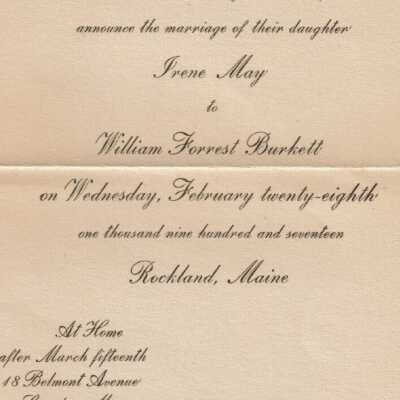 announce the marriage of their daughter
Irene May
to
William Forrest Burkett
on Wednesday, February twenty-eighth
one thousand nine hundred and seventeen
Rockland, Maine
At Home
after March fifteenth
18 Belmont Avenue